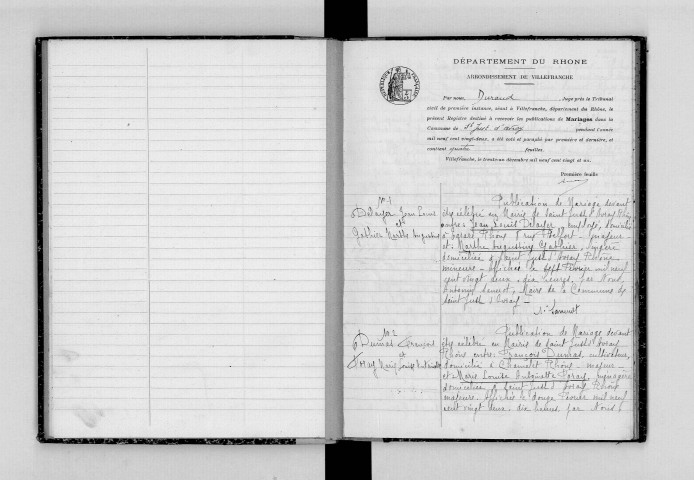 DÉPARTEMENT DU RHONE
ARRONDISSEMENT DE VILLEFRANCHE
Par nous, Durand Juge près le Tribunal
civil de première instance, séant à Villefranche, département du Rhône, le
présent Registre destiné à recevoir les publications de Mariages dans la
Commune de St Just d'Avray pendant l'année
mil neuf cent vingt-deux, a été coté et paraphé par première et dernière, et
contient quatre feuilles.
Villefranche, le trente-un décembre mil neuf cent vingt et un.
Première feuille
N° 1
Jean Louis
et
Marthe Augustine
Publication de Mariage devant
être célébré en Mairie de Saint Just d'Avray
entre Jean Louis employé, domicilié
Rhône rue majeur
et Marthe Augustine
domiciliée à Saint Just d'Avray Rhône
mineure - affichée le sept Février mil neuf
cent vingt deux, dix heures, par Nous
Maire de la Commune de
Saint Just d'Avray
N° 2
Dumas François
et
Marie Louise
Publication de Mariage devant
être célébré en Mairie de Saint Just d'Avray
Rhône entre François Dumas cultivateur,
domicilié à Chamelet Rhône - majeur -
et Marie Louise ménagère
domiciliée à Saint Just d'Avray Rhône
majeure. Affichée le douze Février mil neuf
cent vingt deux, dix heures, par Nous